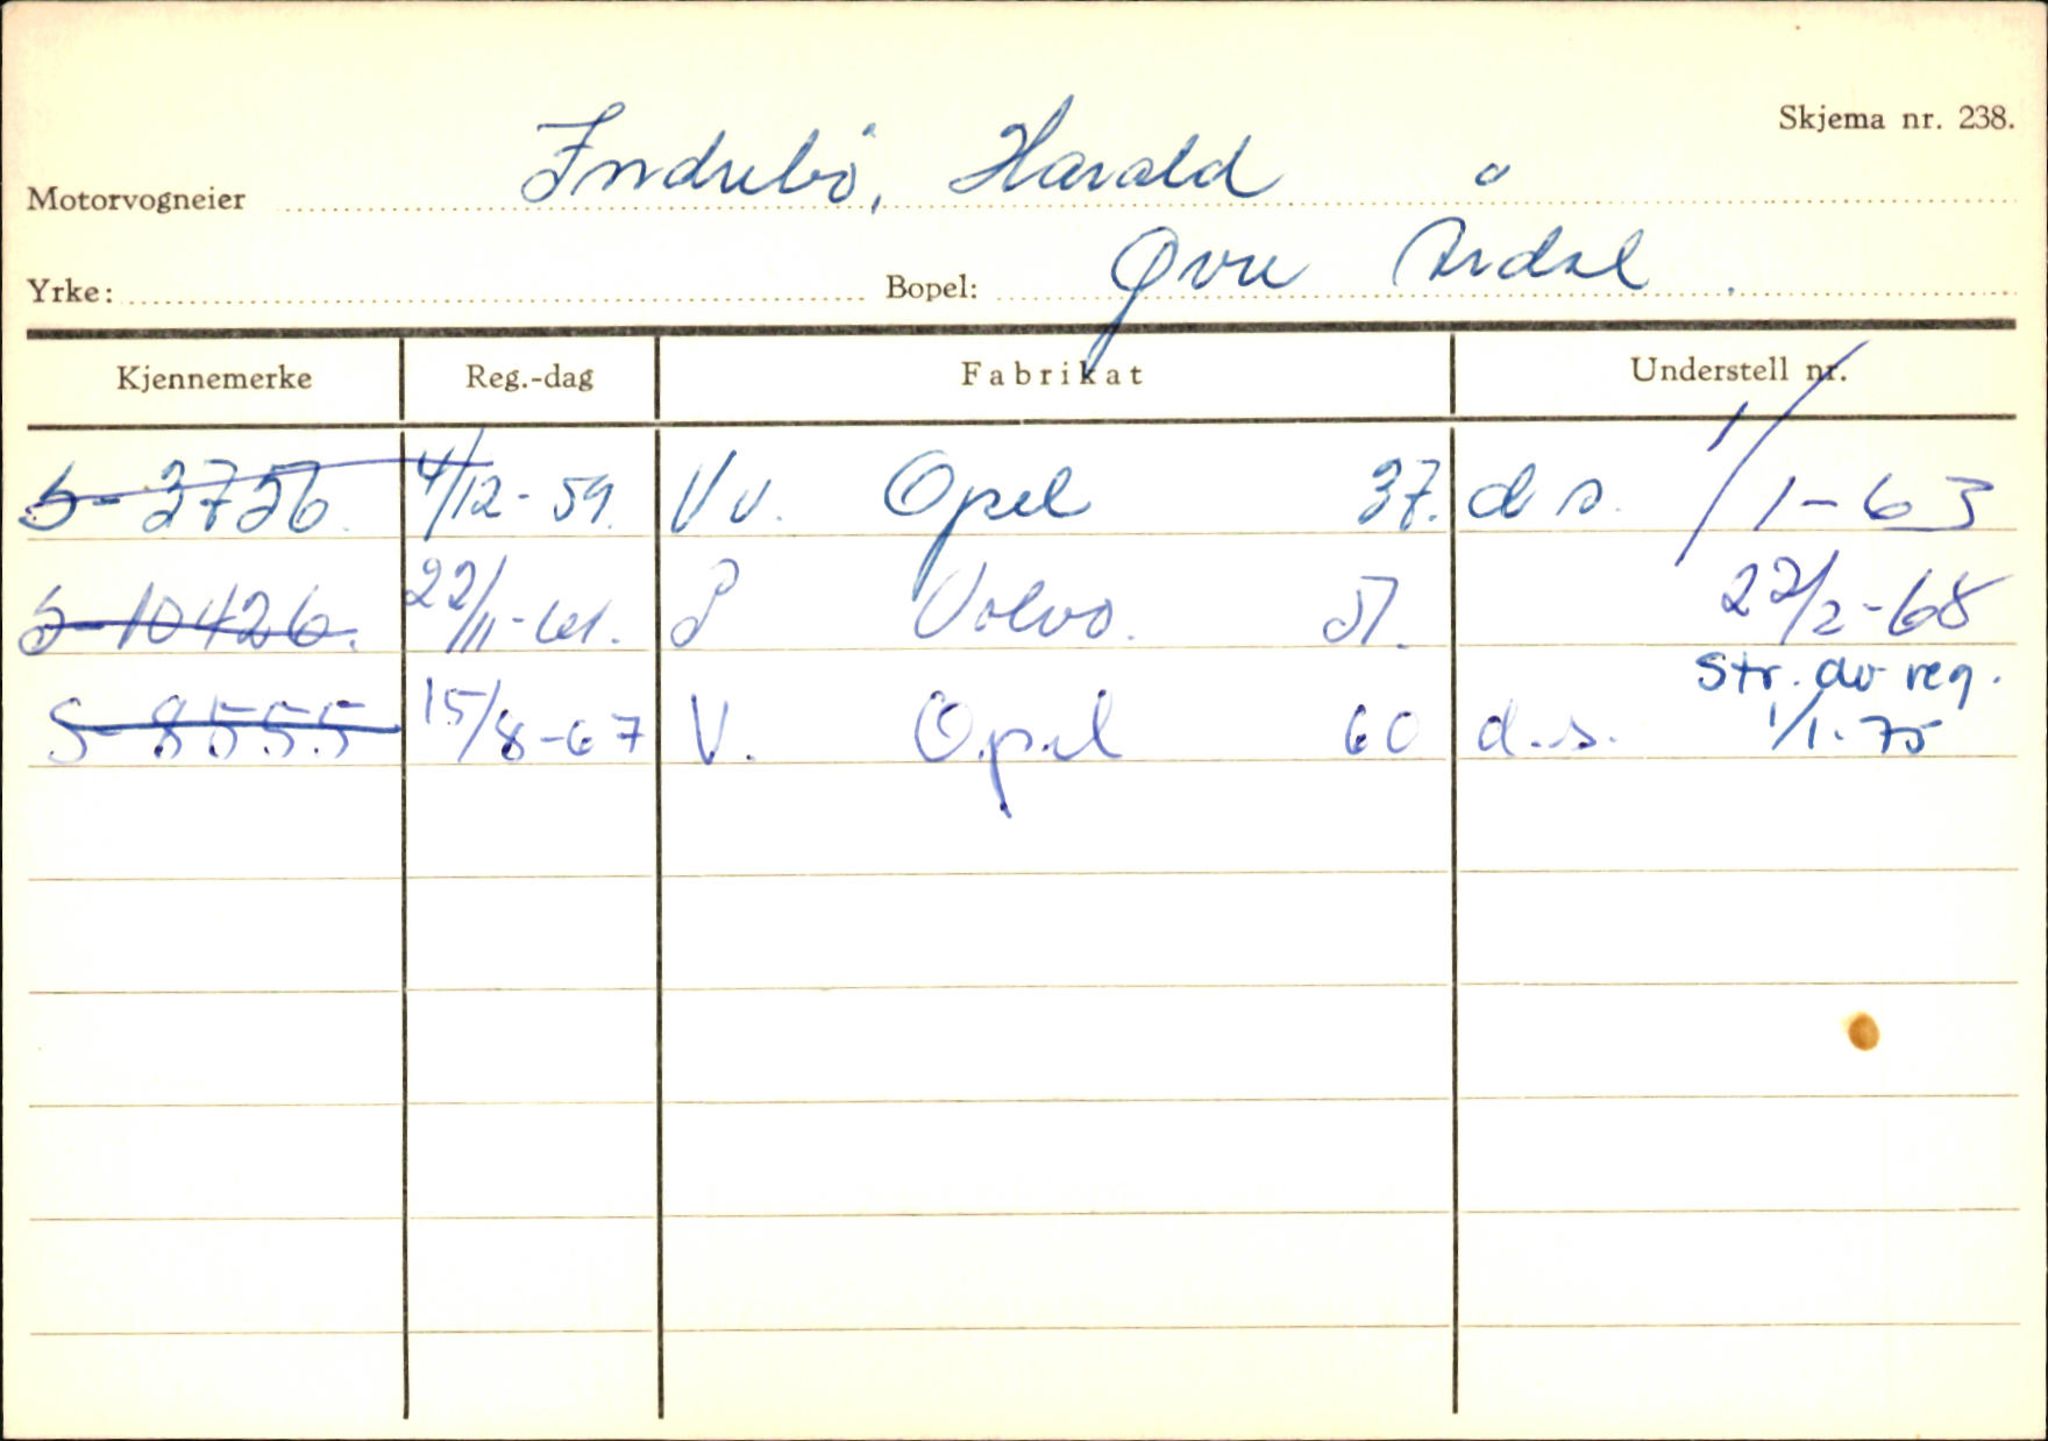 Skjema nr. 238.
Motorvogneier Indrebö, Harald
Yrke: Bopel: Øvre Årdal.
Kjennemerke Reg.-dag Fabrikat Understell nr.
S-3756. 4/12-59. Vv. Opel 37. d s. 1/1-63
S-10426. 22/11-61. P Volvo. 51. 22/2-68
S-8555 15/8-67 V. Opel 60 d.s. Str. av reg. 1/1-75